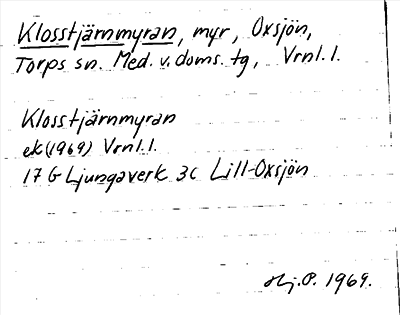 Klosstjärnmyran, myr, Oxsjön,
Torps sn. Med. v. doms. tg, Vrnl. l.
Klosstjärnmyran
ek (1969) Vrnl. l.
17 G Ljungaverk 3C Lill-Oxsjön
Hj. P. 1969.